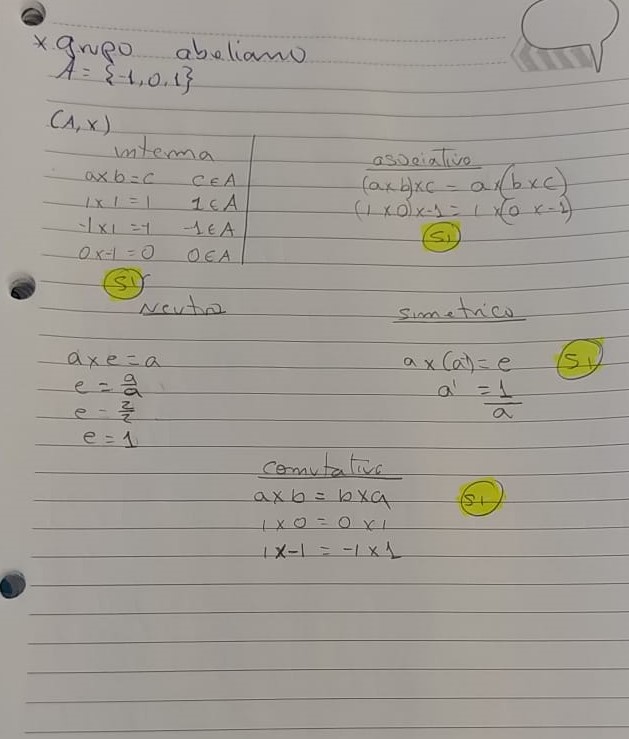 x grupo abeliano
A = {-1,0,1}
(A,x)
interna
axb=c c∈A
1x1=1 1∈A
-1x1=-1 -1∈A
0x-1=0 0∈A
Si
asociativo
(axb)xc = ax(bxc)
(1x0)x-1 = 1x(0x-1)
Si
Neutro
axe=a
e = a/a
e = 2/2
e = 1
simetrico
a x (a') = e Si
a' = 1/a
comutativo
axb = bxa Si
1x0 = 0x1
1x-1 = -1x1